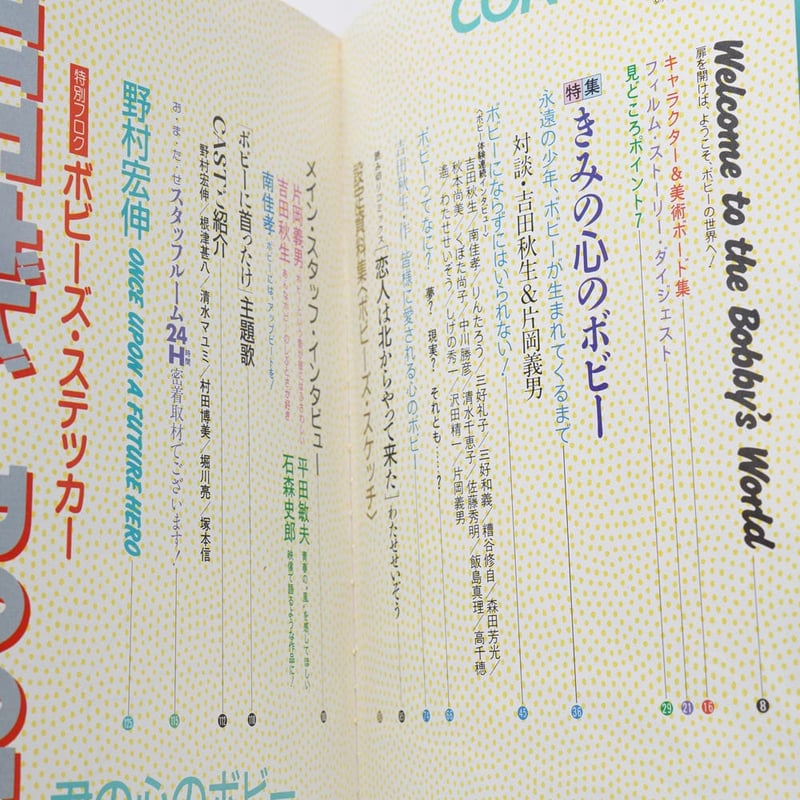 Welcome to the Bobby's World 8
扉を開けば、ようこそ、ボビーの世界へ!
キャラクター&美術ボード集 16
フィルム・ストーリー・ダイジェスト 21
見どころポイント7 29
特集 きみの心のボビー
永遠の少年、ボビーが生まれてくるまで 36
対談・吉田秋生&片岡義男 45
ボビーにならずにはいられない!
〈ボビー体験連続インタビュー〉
吉田秋生/南佳孝/りんたろう/三好礼子/三好和義/糟谷修自/森田芳光/
秋本尚美/くぼた尚子/中川勝彦/清水千恵子/佐藤秀明/飯島真理/高千穂
遙/わたせせいぞう/しげの秀一/沢田精一/片岡義男
ボビーってなに? 夢? 現実? それとも……?
吉田秋生・作 皆様に愛される心のボビー
「恋人は北からやって来た」わたせせいぞう
設定資料集〈ボビーズ・スケッチ〉
メイン・スタッフ・インタビュー
片岡義男
吉田秋生
南佳孝 ボビーには、アップビートを!
平田敏夫 青春の“風”を感じてほしい
石森史郎 映像で語るような作品に!
「ボビーに首ったけ」主題歌
CASTご紹介
野村宏伸/根津甚八/清水マユミ/村田博美/堀川亮/塚本信
お・ま・た・せスタッフルーム24H時間密着取材でございます!
野村宏伸 ONCE UPON A FUTURE HERO
特別フロク ボビーズ・ステッカー
君の心のボビー